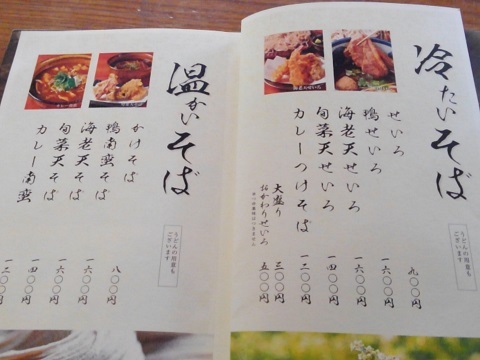 冷たいそば
うどんの用意も
ございます
せいろ 九〇〇円
鴨せいろ 一六〇〇円
海老天せいろ 一六〇〇円
旬菜天せいろ 一四〇〇円
カレーつけそば 一二〇〇円
大盛り 三〇〇円
おかわりせいろ 五〇〇円
温かいそば
うどんの用意も
ございます
かけそば 八〇〇円
鴨南蛮そば 一六〇〇円
海老天そば 一六〇〇円
旬菜天そば 一四〇〇円
カレー南蛮 一二〇〇円